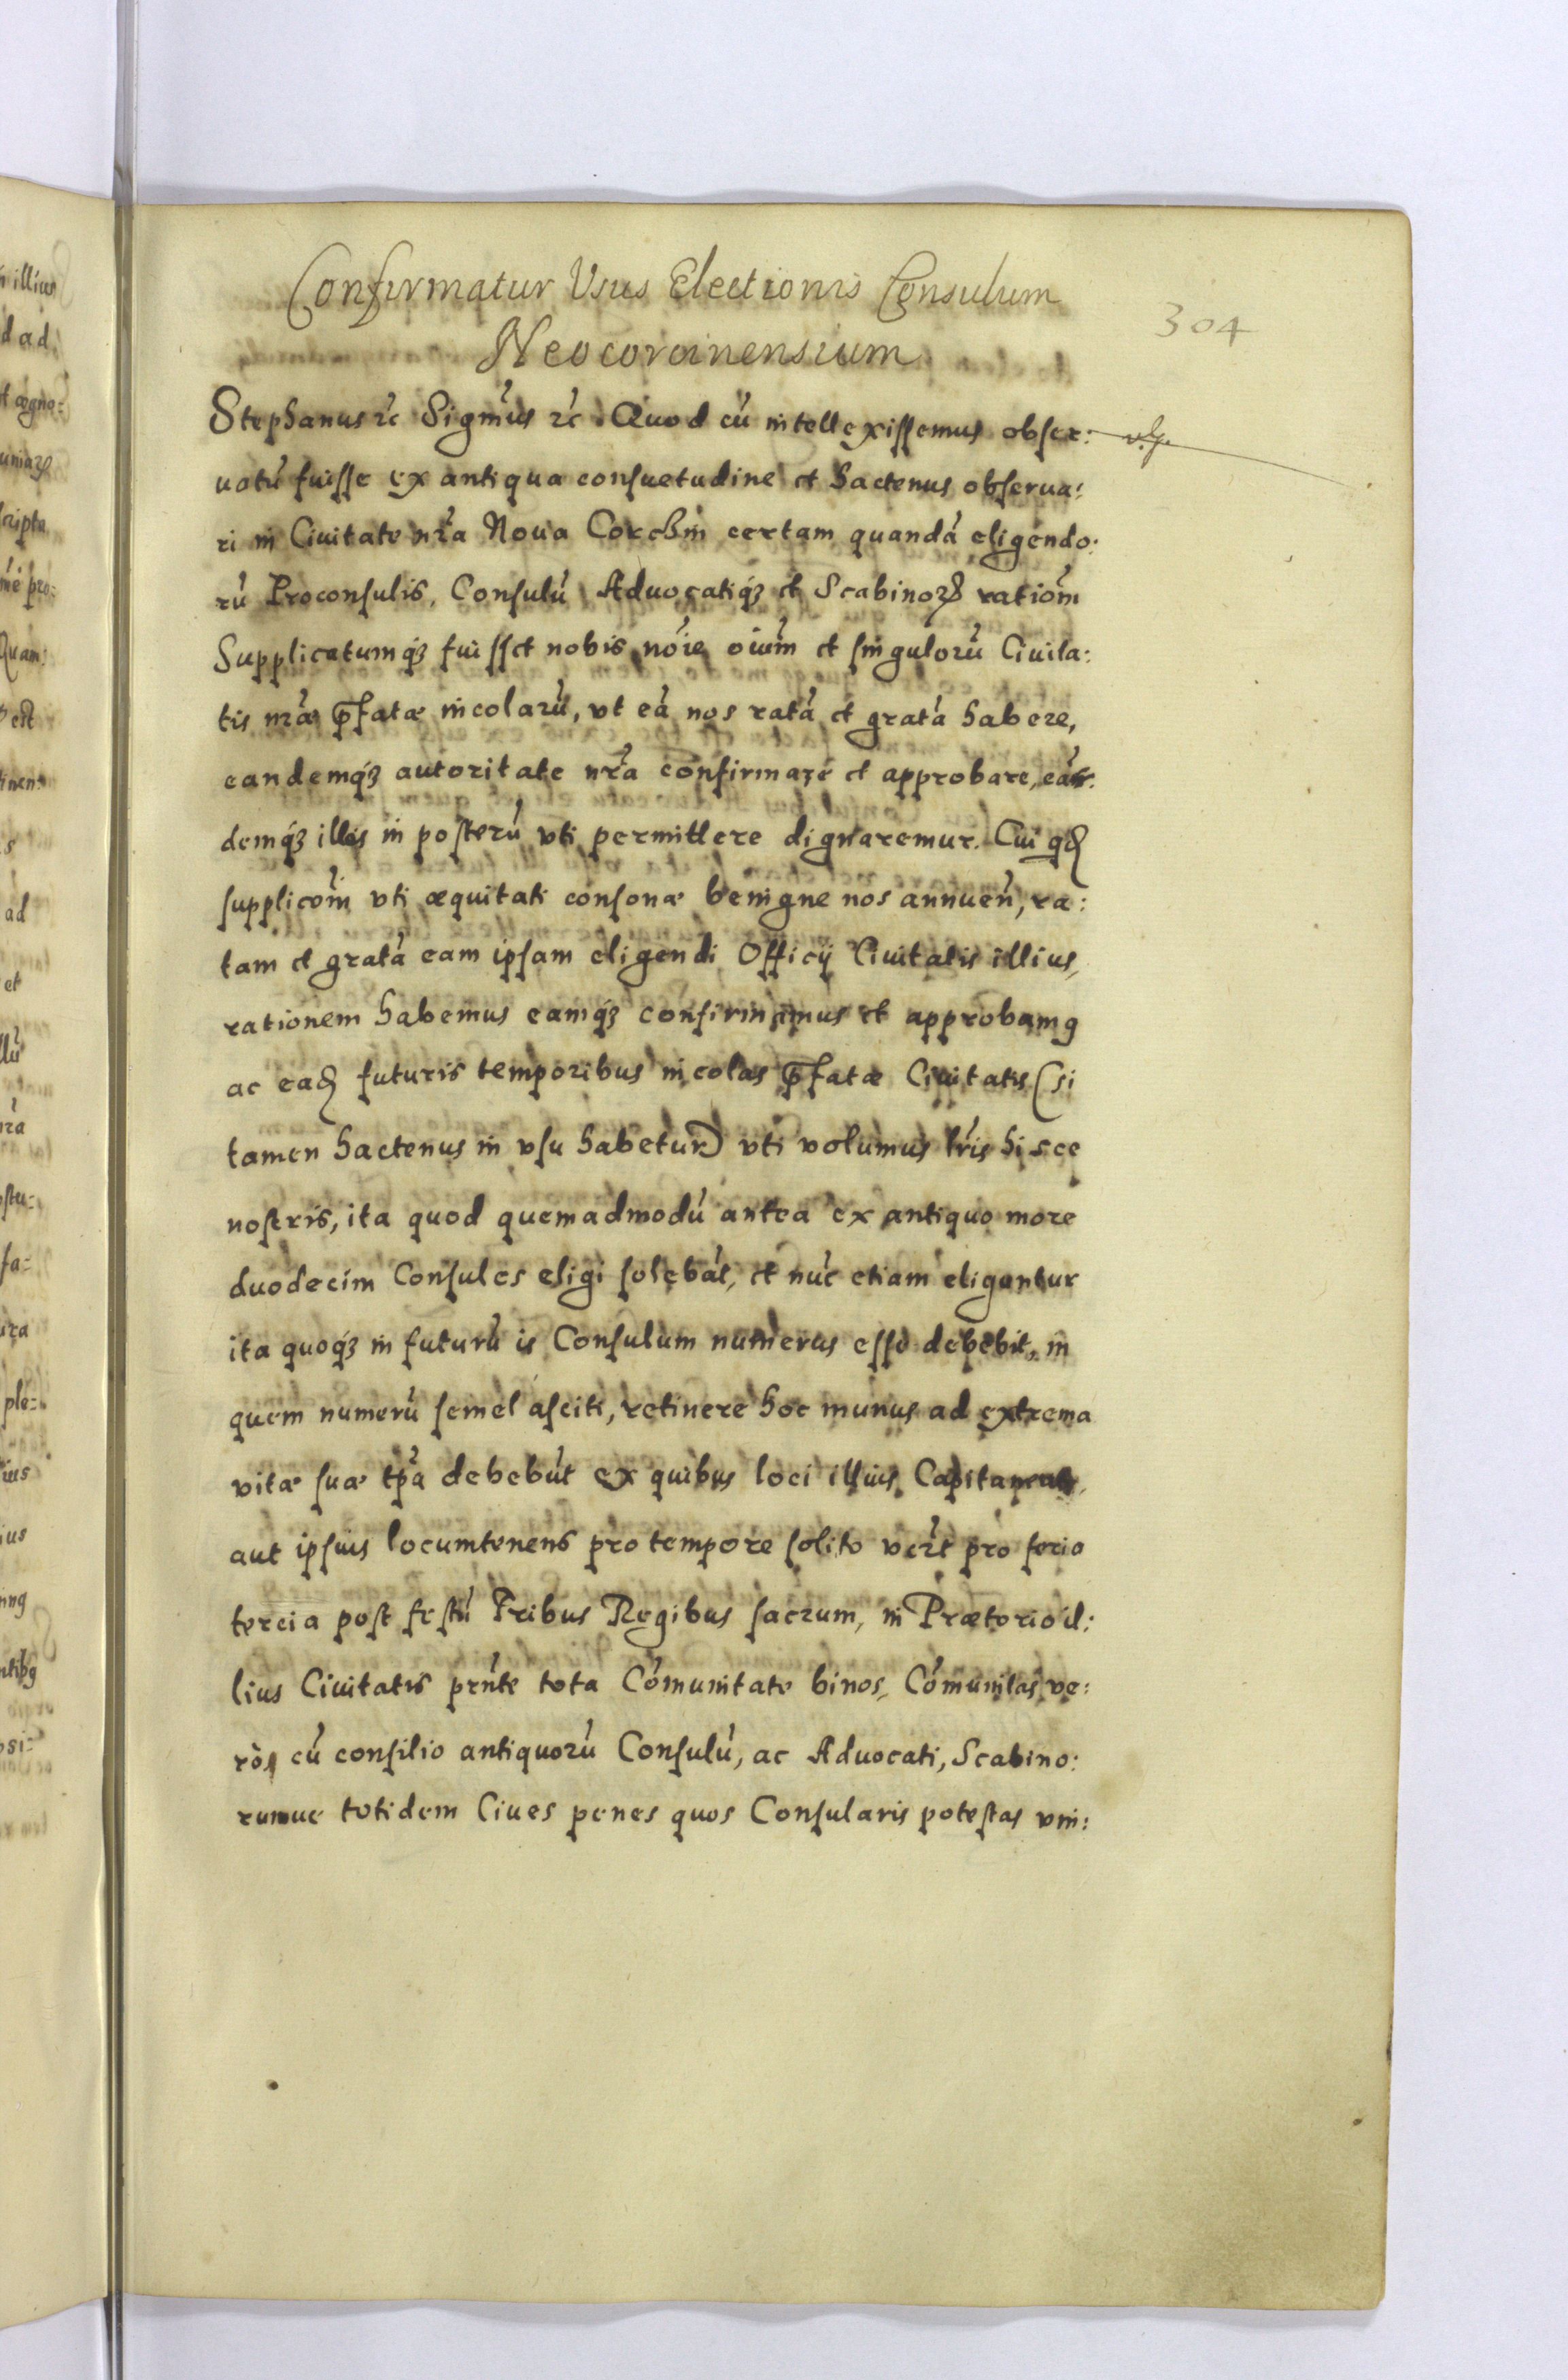 Confirmatur Vsus Electionis Consulum
304
Neocorcinensium
Stephanus etc Sigm̃us etc Quod cũ intellexissemus obser:
uatũ fuisse ex antiqua consuetudine et hactenus obserua:
ri in Ciuitate nr̃a Noua Corchin certam quandã eligendo:
rũ Proconsulis, Consulũ Aduocatiqꝫ et Scabinoꝝ ratiom̃
Supplicatumqꝫ fuisset nobis noĩe oium̃ et singulorũ Ciuita:
tis nrã p̃fatæ incolarũ, vt eã nos ratã et gratã habere,
eandemqꝫ autoritate nr̃a confirmare et approbare, eã
demqꝫ illis in posterũ vti permittere dignaremur. Cui qd
supplicom̃ vti æquitati consonæ benigne nos annuen̄, ra:
tam et gratã eam ipsam eligendi Officij Ciuitatis illius,
rationem habemus eamqꝫ confirmamus et approbamꝯ
ac ead futuris temporibus incolas p̃fatæ Ciuitatis (si
tamen hactenus in vsu habetur) vti volumus lr̃is hisce
nostris, ita quod quemadmodũ antea ex antiquo more
duodecim Consules eligi solebãt, et nũc etiam eliguntur
ita quoqꝫ in futurũ is Consulum numerus esse debebit, in
quem numerũ semel asciti, retinere hoc munus ad extrema
vitæ suæ tp̃a debebũt ex quibus loci illius Capitaneus,
aut ipsius locumtenens pro tempore solito vcz̃t pro feria
tercia post festũ Tribus Regibus sacrum, in Prætorio il:
lius Ciuitatis prñte tota Cõmunitate binos, Cõmunitas ve:
rò cũ consilio antiquorũ Consulũ, ac Aduocati, Scabino:
rumue totidem Ciues penes quos Consularis potestas vni: